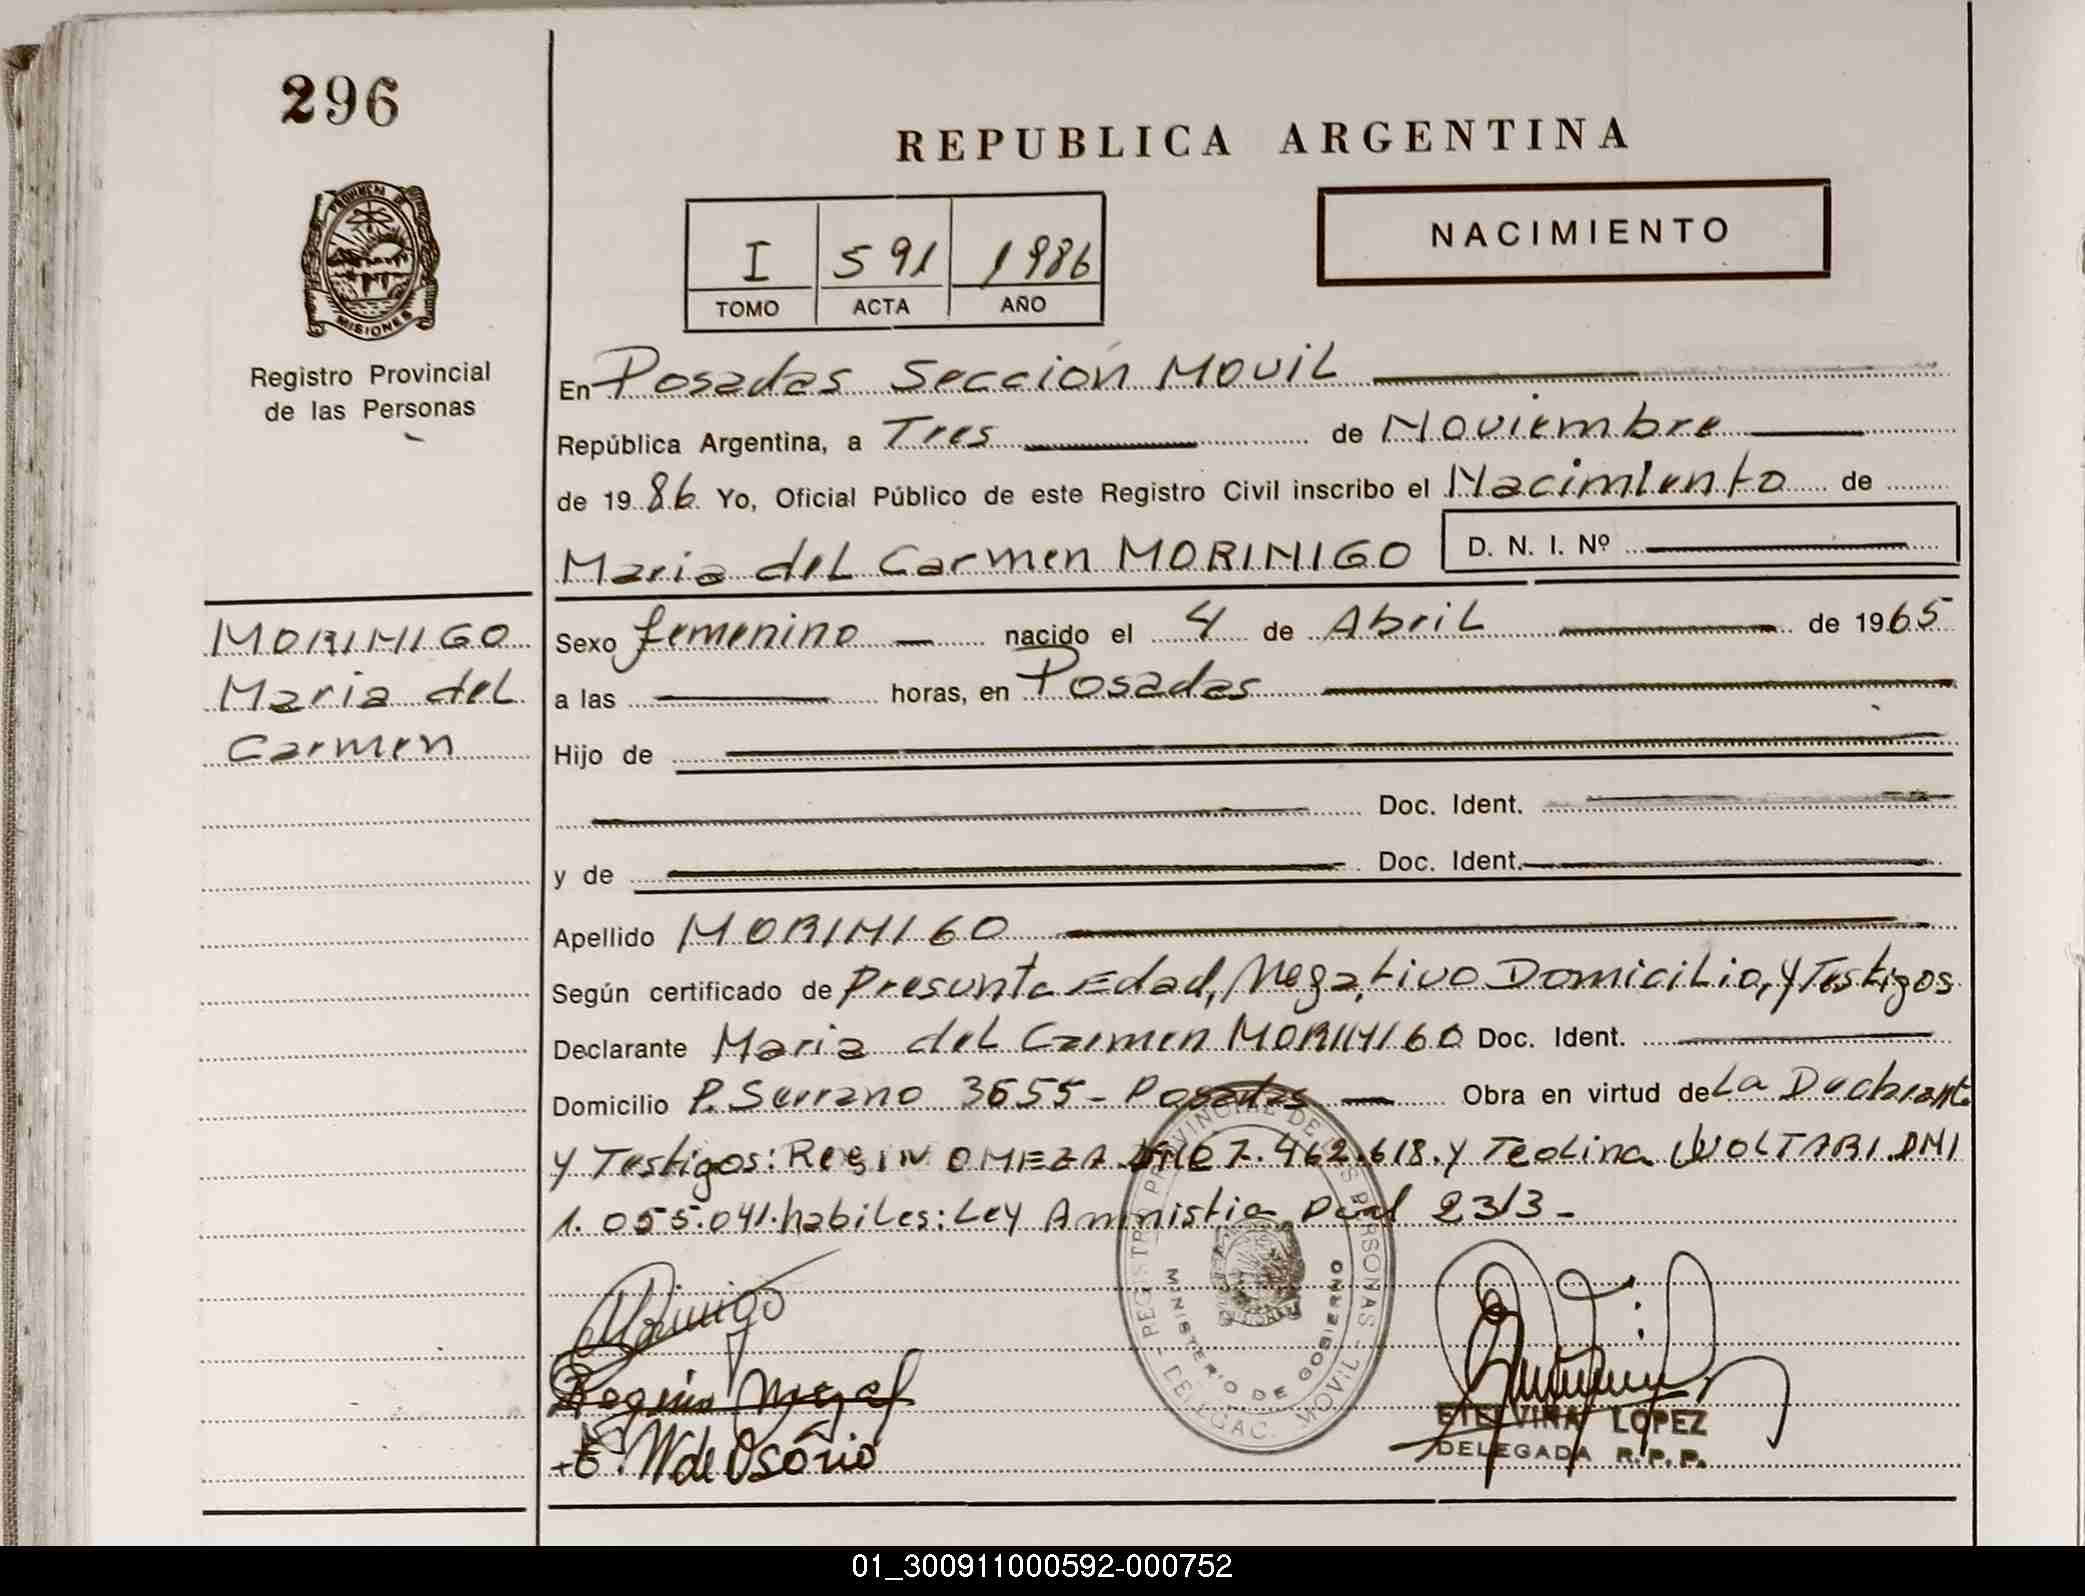 296
REPUBLICA ARGENTINA
NACIMIENTO
I 591 1986
TOMO ACTA AÑO
PROVINCIA DE
MISIONES
Registro Provincial
de las Personas
En Posadas Seccion Movil
República Argentina, a Tres de Noviembre
de 1986. Yo, Oficial Público de este Registro Civil inscribo el Nacimiento de
Maria del Carmen MORINIGO D. N. I. Nº
MORINIGO
Maria del
Carmen
Sexo femenino nacido el 4 de Abril de 1965
a las horas, en Posadas
Hijo de
Doc. Ident.
y de Doc. Ident.
Apellido MORINIGO
Según certificado de Presunta Edad, Negativo Domicilio, y Testigos
Declarante Maria del Carmen MORINIGO Doc. Ident.
Domicilio P. Serrano 3655 - Posadas Obra en virtud de La Declarante
y Testigos: REGINO MEZA 7.462.618. y Teolina DNI
1.055.041. habiles: Ley Amnistia 23/3 -
REGISTRO PROVINCIAL DE LAS PERSONAS
MINISTERIO DE GOBIERNO
DELEGAC. MOVIL
Morinigo
Regino Meza
W de Osorio
ETELVINA LOPEZ
DELEGADA R.P.P.
01_300911000592-000752